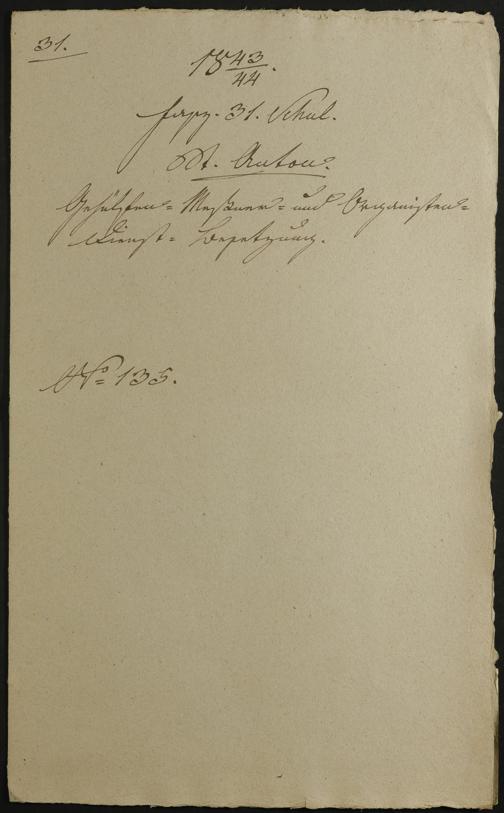 31.
18 43/44.
Fasz. 31. Schul.
St. Anton.
Gehülfen- Meßner- und Organisten-
Dienst- Besetzung.
No 135.